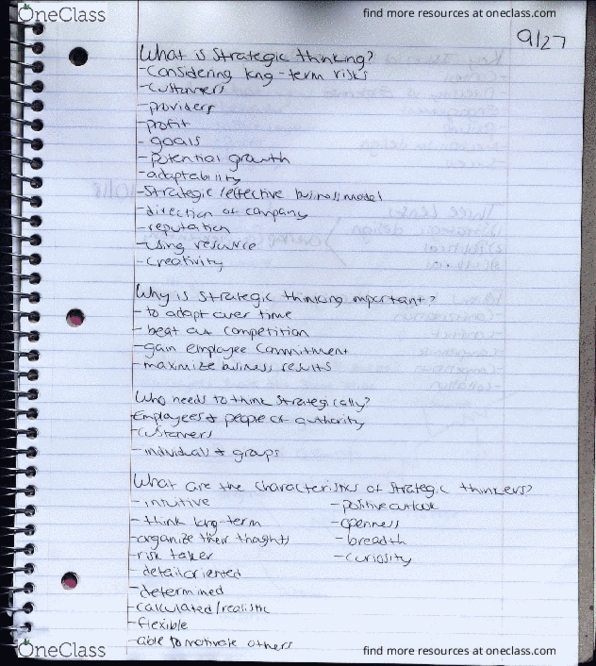 OneClass
find more resources at oneclass.com
9/27
What is strategic thinking?
-Considering long-term risks
-customers
-providers
-profit
-goals
-potential growth
-adaptability
-Strategic/effective business model
-direction of company
-reputation
-using resource
-creativity
Why is strategic thinking important?
-to adapt over time
-beat out competition
-gain employee commitment
-maximize business results
Who needs to think strategically?
-Employees & people of authority
-customers
-individuals & groups
What are the characteristics of strategic thinkers?
-intuitive
-positive outlook
-think long-term
-openness
-organize their thoughts
-breadth
-risk taker
-curiosity
-detail oriented
-determined
-calculated/realistic
-flexible
-able to motivate others
OneClass
find more resources at oneclass.com